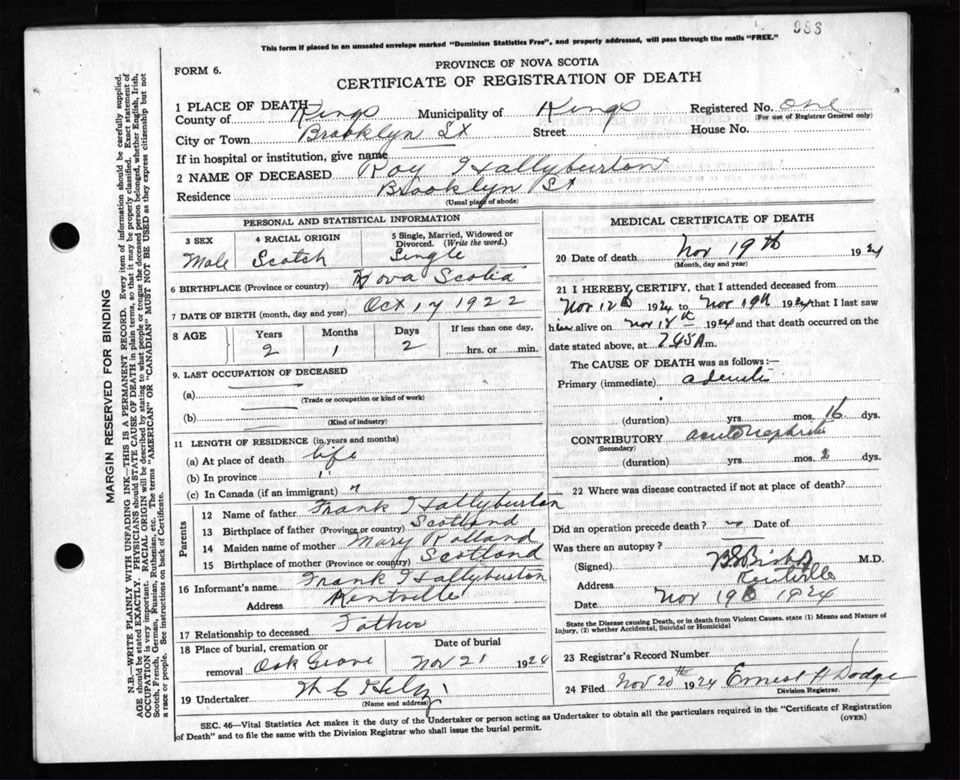 953
This form if placed in an unsealed envelope marked "Dominion Statistics Free", and properly addressed, will pass through the mails "FREE."
PROVINCE OF NOVA SCOTIA
FORM 6.
CERTIFICATE OF REGISTRATION OF DEATH
1 PLACE OF DEATH
County of Kings Municipality of Kings Registered No. one
(For use of Registrar General only)
City or Town Brooklyn St Street House No.
If in hospital or institution, give name
2 NAME OF DECEASED Roy Hallyburton
Residence Brooklyn St
(Usual place of abode)
PERSONAL AND STATISTICAL INFORMATION
3 SEX 4 RACIAL ORIGIN 5 Single, Married, Widowed or Divorced. (Write the word.)
Male Scotch Single
6 BIRTHPLACE (Province or country) Nova Scotia
7 DATE OF BIRTH (month, day and year) Oct 17 1922
8 AGE Years Months Days If less than one day,
2 1 2 hrs. or min.
9. LAST OCCUPATION OF DECEASED
(a)
(Trade or occupation or kind of work)
(b)
(Kind of industry)
11 LENGTH OF RESIDENCE (in years and months)
(a) At place of death life
(b) In province "
(c) In Canada (if an immigrant) "
Parents
12 Name of father Frank Hallyburton
13 Birthplace of father (Province or country) Scotland
14 Maiden name of mother Mary Rolland
15 Birthplace of mother (Province or country) Scotland
16 Informant's name Frank Hallyburton
Address Kentville
17 Relationship to deceased Father
18 Place of burial, cremation or removal Oak Grove Date of burial Nov 21 1924
19 Undertaker W C
(Name and address)
MEDICAL CERTIFICATE OF DEATH
20 Date of death Nov 19th 1924
(Month, day and year)
21 I HEREBY CERTIFY, that I attended deceased from
Nov 12th 1924 to Nov 19th 1924 that I last saw
him alive on Nov 18th 1924 and that death occurred on the
date stated above, at 7.45 A m.
The CAUSE OF DEATH was as follows:—
Primary (immediate)
(duration) yrs. mos. 16 dys.
CONTRIBUTORY acute nephritis
(Secondary)
(duration) yrs. mos. 2 dys.
22 Where was disease contracted if not at place of death?
Did an operation precede death? no Date of
Was there an autopsy?
(Signed) B S Bishop M.D.
Address Kentville
Date Nov 19th 1924
State the Disease causing Death, or in death from Violent Causes, state (1) Means and Nature of
Injury, (2) whether Accidental, Suicidal or Homicidal
23 Registrar's Record Number
24 Filed Nov 20th 1924 Ernest H Dodge
Division Registrar.
SEC. 46—Vital Statistics Act makes it the duty of the Undertaker or person acting as Undertaker to obtain all the particulars required in the "Certificate of Registration
of Death" and to file the same with the Division Registrar who shall issue the burial permit. (OVER)
MARGIN RESERVED FOR BINDING
N.B.—WRITE PLAINLY WITH UNFADING INK—THIS IS A PERMANENT RECORD. Every item of information should be carefully supplied.
AGE should be stated EXACTLY. PHYSICIANS should STATE CAUSE OF DEATH in plain terms, so that it may be properly classified. Exact statement of
OCCUPATION is very important. RACIAL ORIGIN will be described by stating to what people or tongue the deceased person belonged, whether English, Irish,
Scotch, French, German, Russian, Ruthenian, etc. The terms "AMERICAN" OR "CANADIAN" MUST NOT BE USED as they express citizenship but not
a race or people. See instructions on back of Certificate.